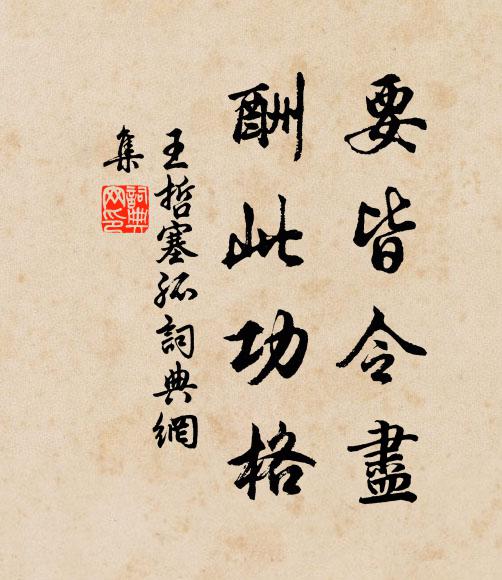 要皆令盡
酬此功格
王哲塞孤詞典網
集
詞典網印